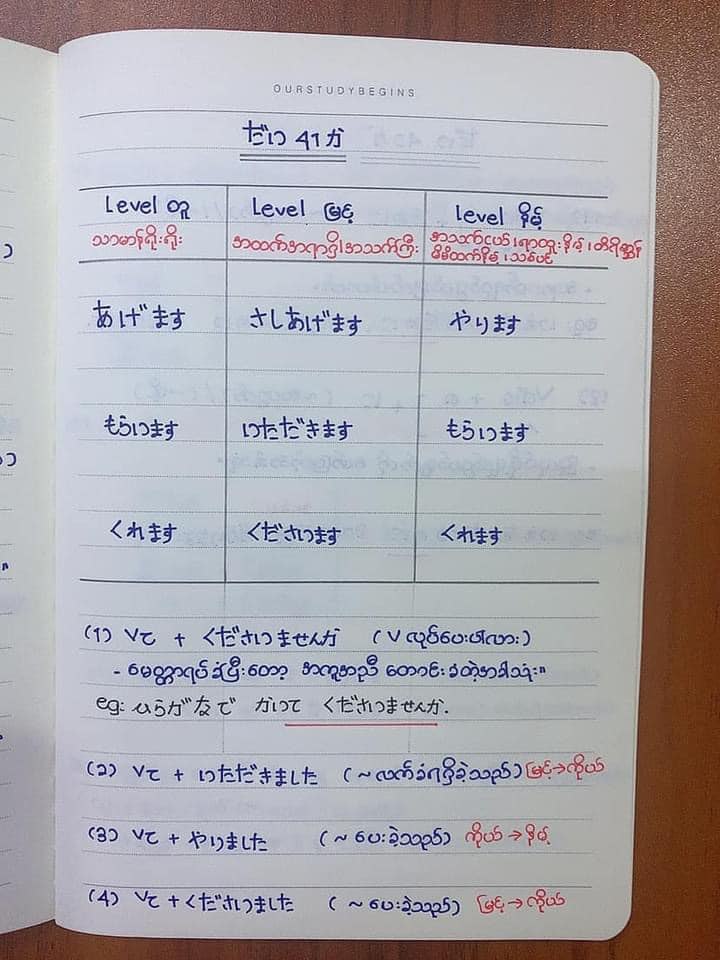 OURSTUDYBEGINS
だい 41 か
Level တူ Level မြင့် Level နိမ့်
သာမာန်ရိုးရိုး အထက်အရာရှိ၊အသက်ကြီး အသက်ငယ်၊ရာထူးနိမ့်၊တိရိစ္ဆာန်
မိမိထက်နိမ့်၊သစ်ပင်
あげます さしあげます やります
もらいます いただきます もらいます
くれます くださいます くれます
(1) Vて + くださいませんか (V လုပ်ပေးပါလား)
- မေတ္တာရပ်ခံပြီးတော့ အကူအညီ တောင်းခံတဲ့အခါသုံး။
eg: ひらがなで かいて くださいませんか.
(2) Vて + いただきました (~လက်ခံရရှိခဲ့သည်) မြင့်→ကိုယ်
(3) Vて + やりました (~ ပေးခဲ့သည်) ကိုယ် → နိမ့်
(4) Vて + くださいました (~ ပေးခဲ့သည်) မြင့် → ကိုယ်